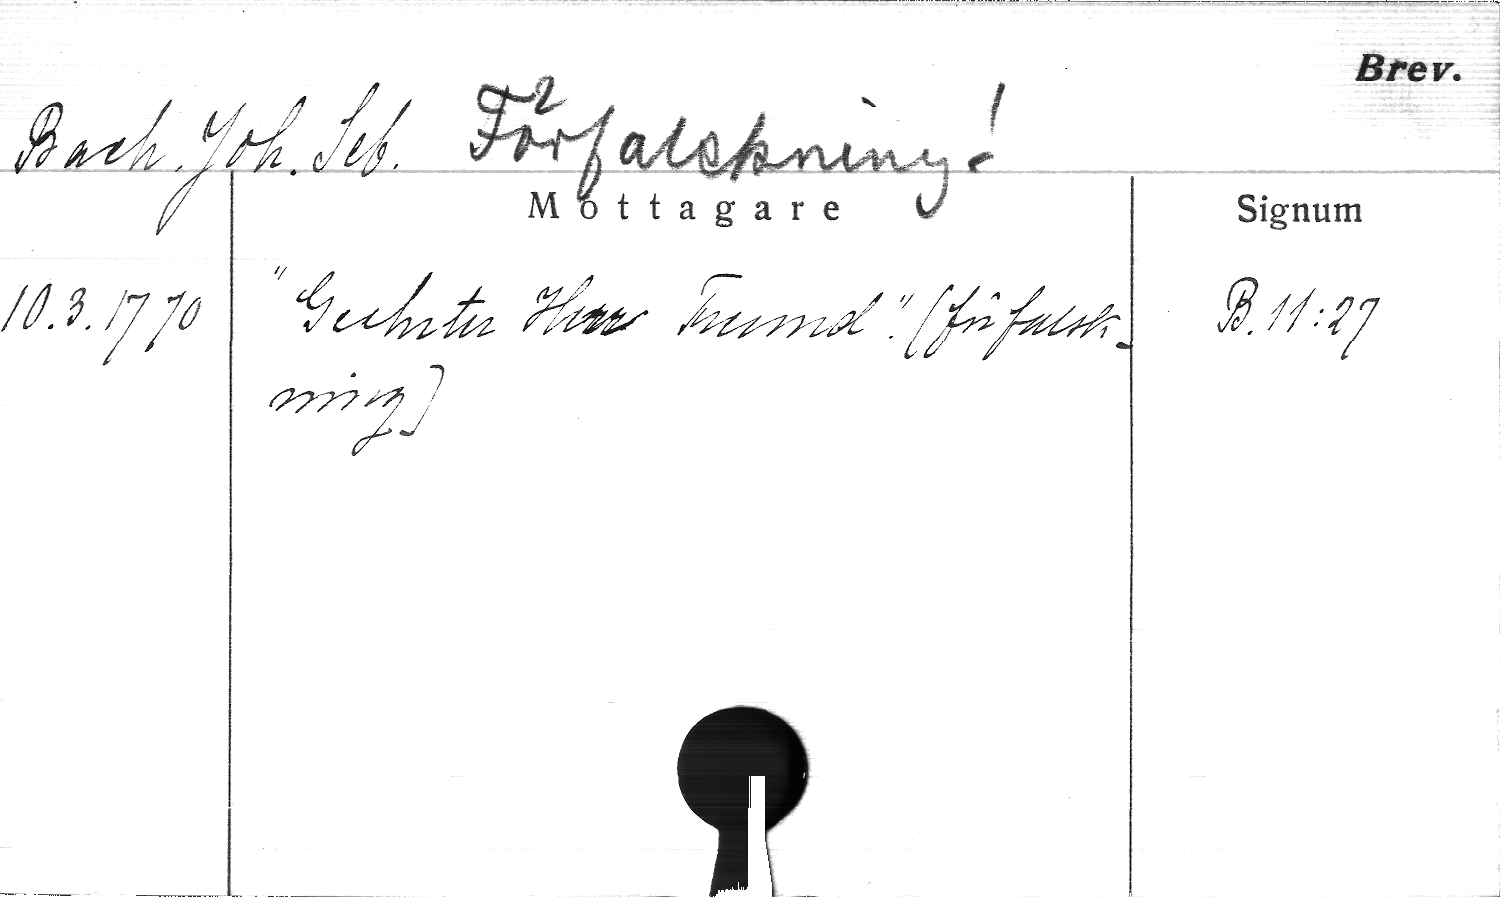 Brev.
Bach, Joh. Seb. Förfalskning!
Mottagare
Signum
10.3.1770 "Geehrter Herr Freund". (förfalsk- B. 11:27
ning)